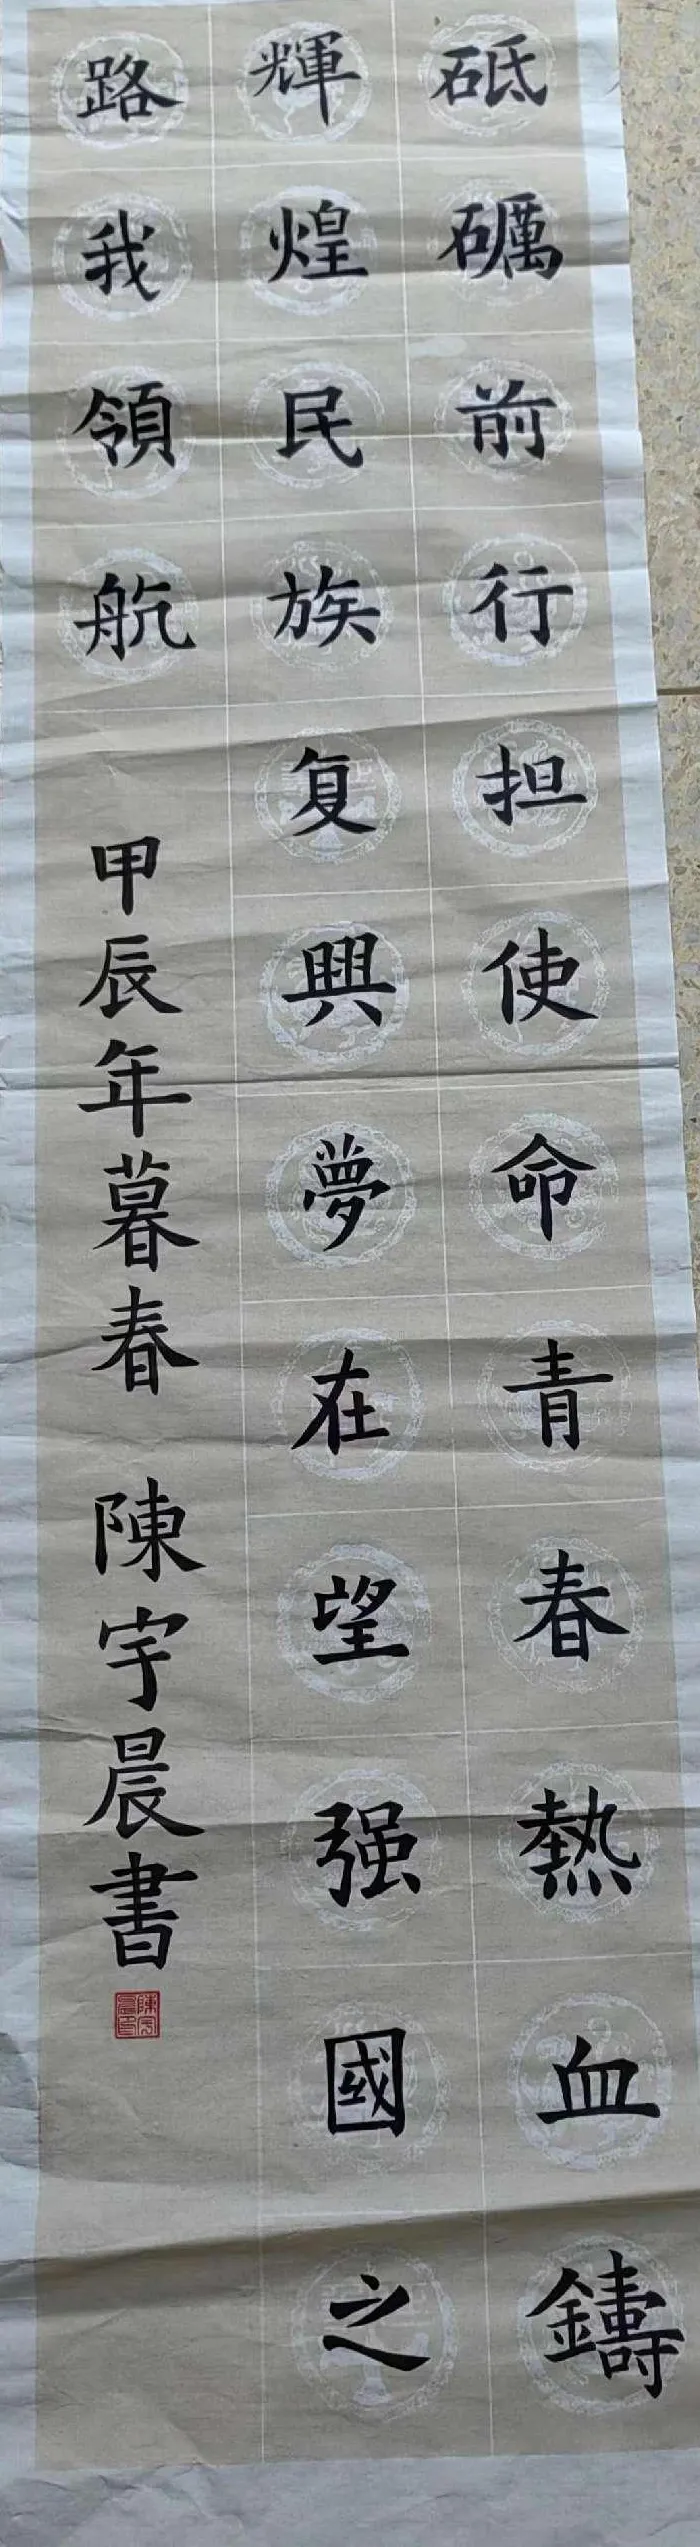 砥礪前行担使命青春熱血鑄
輝煌民族复興夢在望强國之
路我領航
甲辰年暮春 陳宇晨書